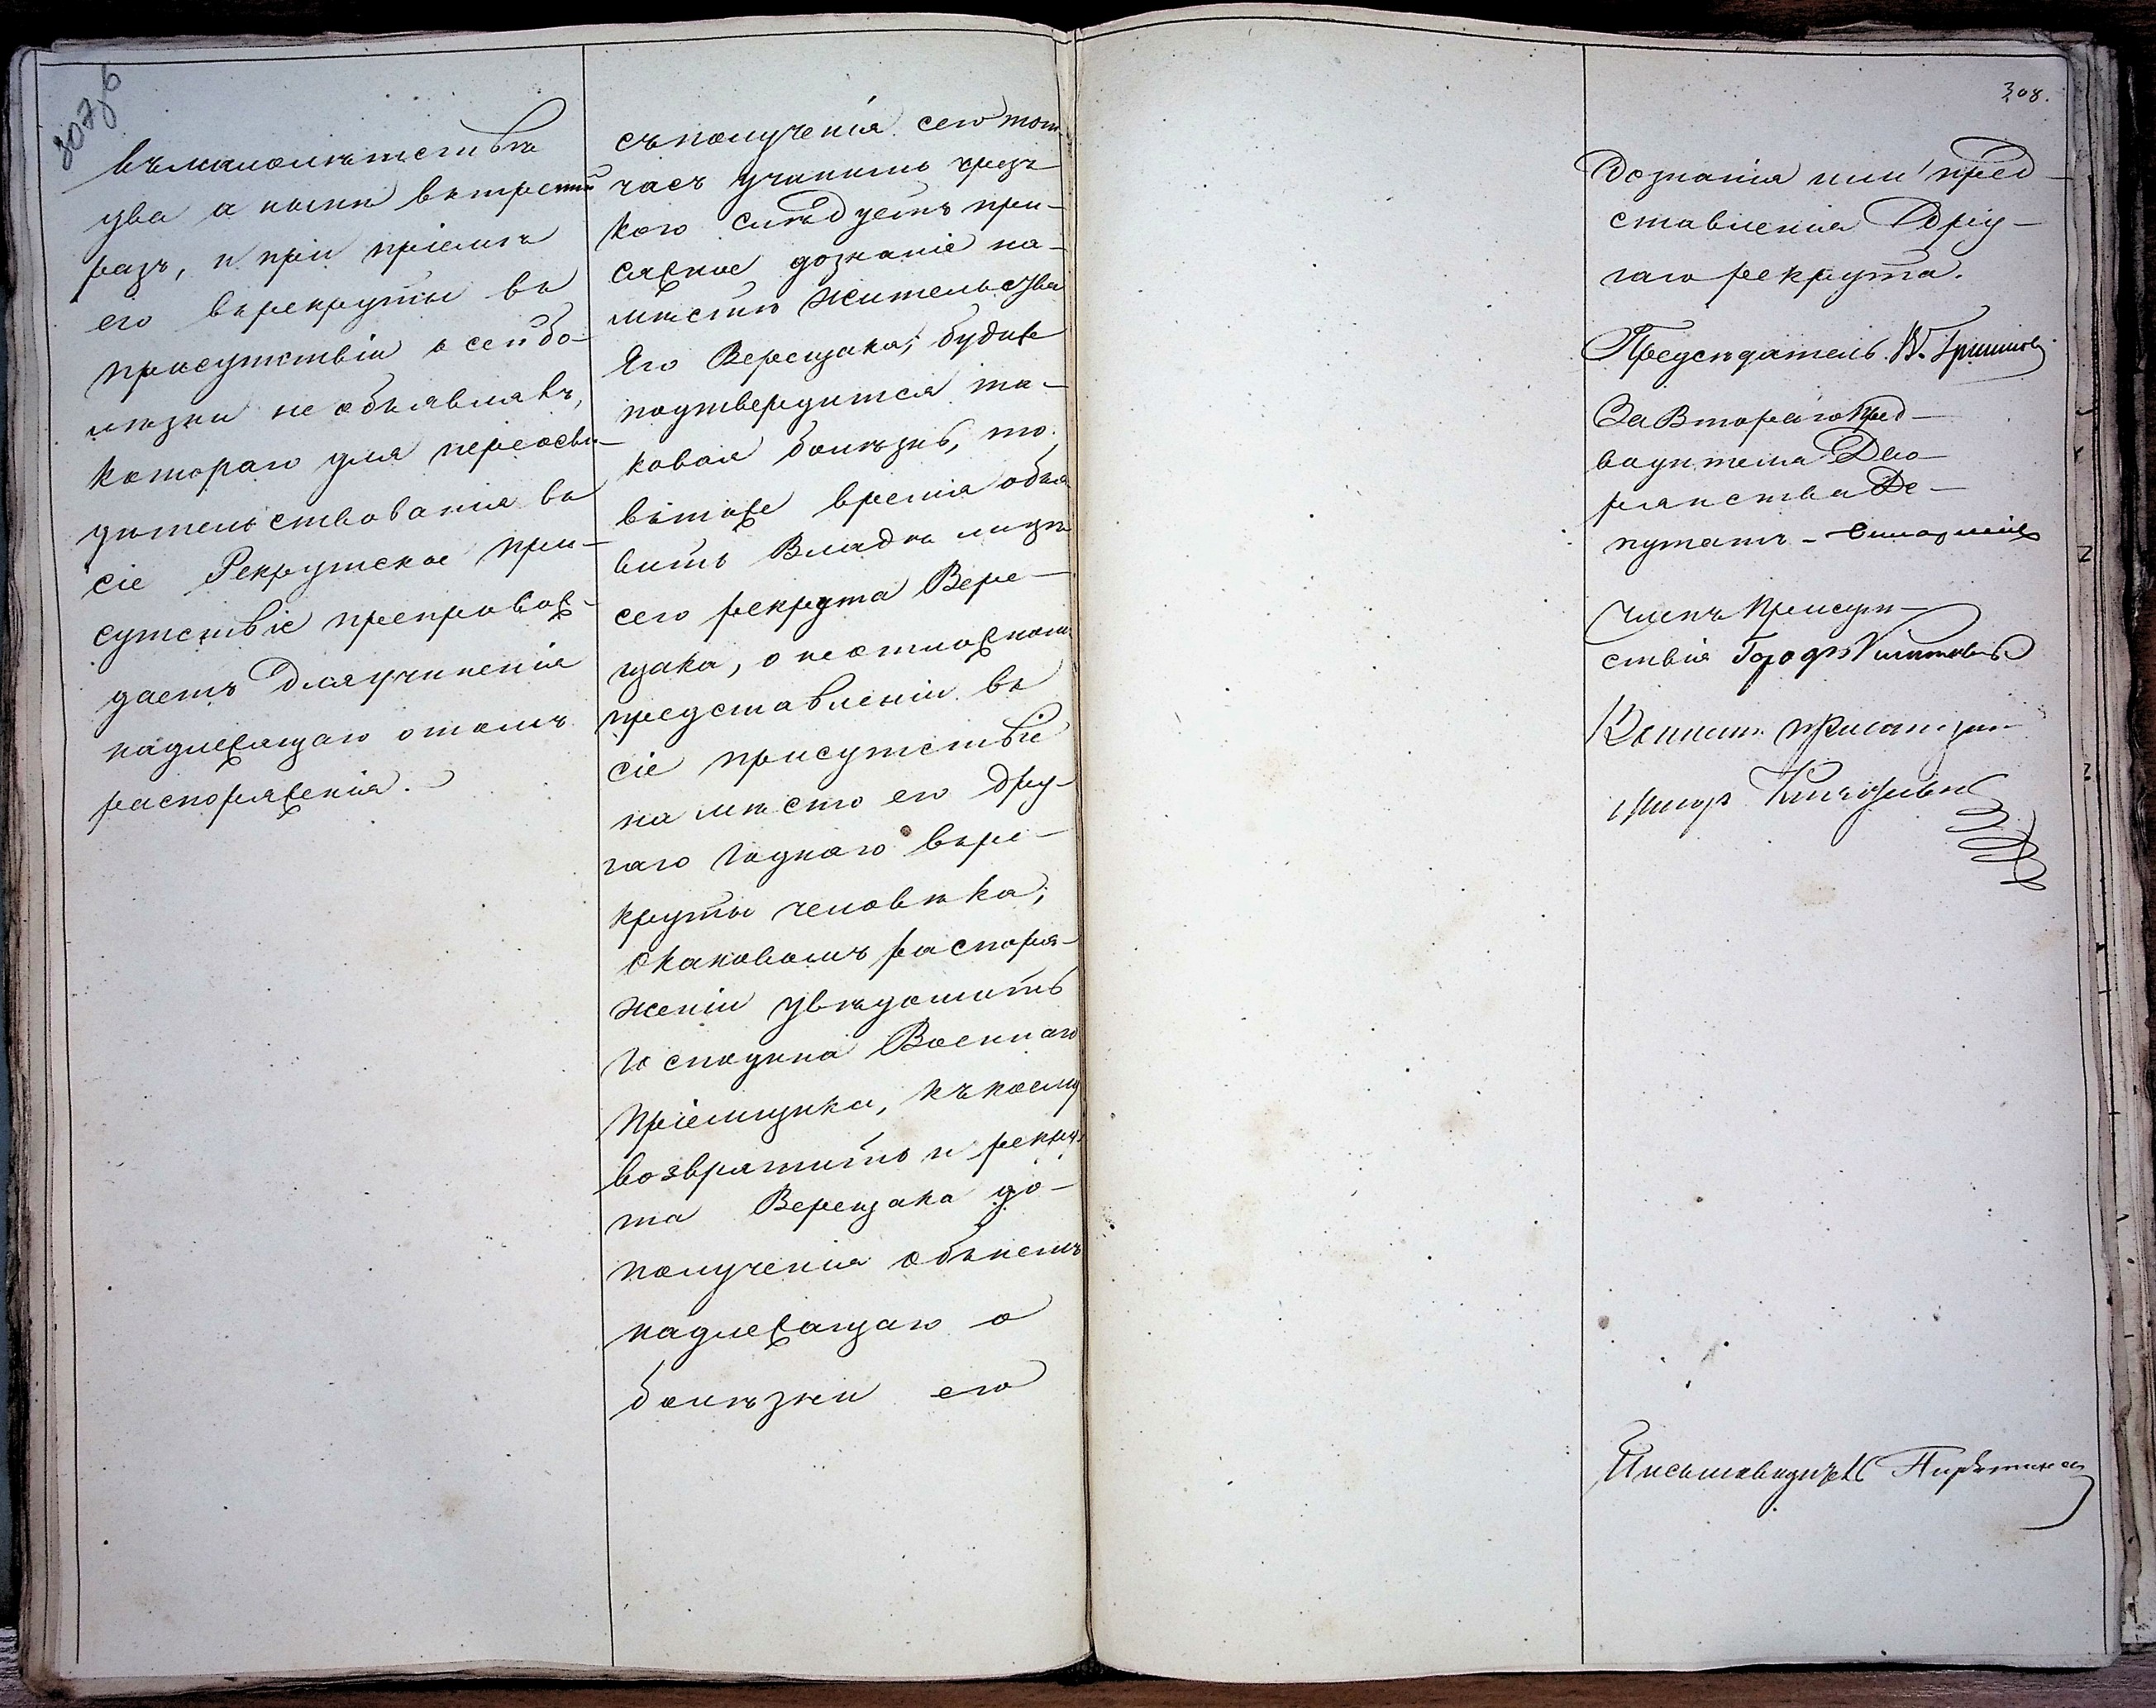 307 об
въ малолѣтствѣ
два а нынѣ въ третій
разъ, и при пріемѣ
его въ рекруты въ
присутствіи о сей бо-
лѣзни не объявлялъ,
котораго для переосви-
дѣтельствованія въ
сіе Рекрутское При-
сутствіе препровож-
даетъ для учиненія
надлежащаго о томъ
распоряженія.
съ полученія сего тот-
часъ учинить чрезъ
кого слѣдуетъ при-
сяжное дознаніе на
мѣстѣ жительства
Его Верещака; буди же
подтвердится та-
ковая болѣзнь, то
въ тоже время объя-
вить Владѣлицѣ
сего рекрута Вере-
щака, о неотложном
представленіи въ
сіе присутствіе
на мѣсто его дру-
гаго годнаго въ ре-
круты человѣка;
о каковомъ распоря-
женіи увѣдомить
Господина Военнаго
Пріемщика, къ коему
возвратить и рекру-
та Верещака до
полученія объ немъ
надлежащаго о
болѣзни его
308.
Дознанія или пред-
ставленія Дру-
гаго рекрута.
Предсѣдатель
За Втораго Пред-
водителя Дво-
рянства Де-
путатъ -
Членъ Присут-
ствія Город
Военный пріемщикъ
Маіоръ
Письмоводитель